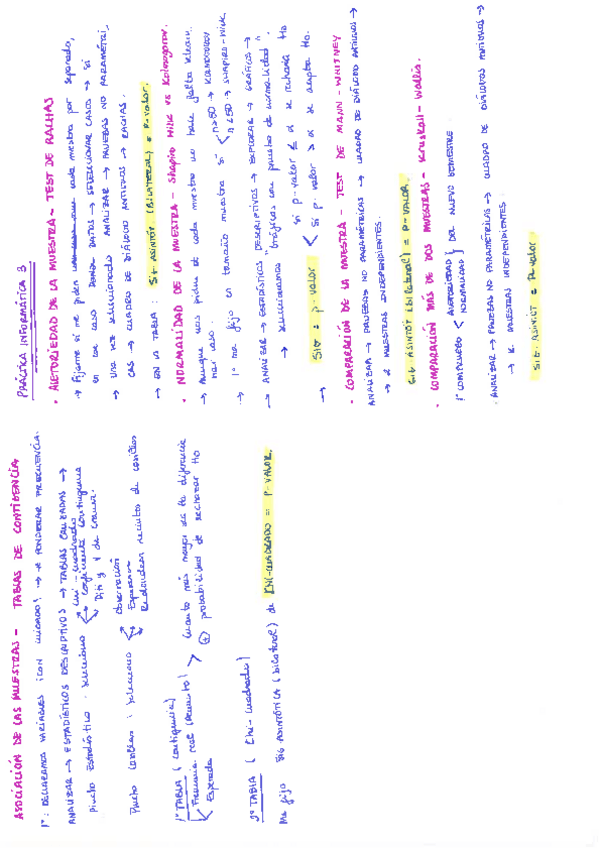 PRÁCTICA INFORMÁTICA 3
• ALETORIEDAD DE LA MUESTRA - TEST DE RACHAS
→ Fijarme si me piden cada muestra por separado,
en ese caso DATOS → SELECCIONAR CASOS → si
→ Una vez seleccionado ANALIZAR → PRUEBAS NO PARAMÉTRI
CAS → CUADRO DE DIÁLOGO ANTIGUOS → RACHAS.
→ EN LA TABLA : Sig ASINTÓT. (BILATERAL) = P-valor.
• NORMALIDAD DE LA MUESTRA - Shapiro Wilk vs Kolmogorov.
→ Aunque nos pidan de cada muestra no hace falta selecc.
nar caso.
→ 1º me fijo en tamaño muestra si n>50 → KOLMOGOROV
n≤50 → SHAPIRO-WILK
→ ANALIZAR → ESTADÍSTICOS DESCRIPTIVOS → EXPLORAR → GRÁFICOS →
→ seleccionamos "Gráficos con prueba de normalidad".
Sig = p-valor si p-valor ≤ α se rechaza Ho
si p-valor > α se acepta Ho.
• COMPARACIÓN DE LA MUESTRA - TEST DE MANN-WHITNEY
ANALIZAR → PRUEBAS NO PARAMÉTRICAS → CUADRO DE DIÁLOGO ANTIGUOS →
→ 2 MUESTRAS INDEPENDIENTES.
SIG ASINTÓT (bilateral) = P-VALOR.
• COMPARACIÓN MAS DE DOS MUESTRAS - Kruskall-Wallis.
1º COMPRUEBO ALEATORIEDAD
NORMALIDAD
DEL NUEVO SEMESTRE.
• ANALIZAR → PRUEBAS NO PARAMÉTRICAS → CUADRO DE DIÁLOGOS ANTIGUOS →
→ K MUESTRAS INDEPENDIENTES.
SIG. ASINÓT = P-valor.
ASOCIACIÓN DE LAS MUESTRAS - TABLAS DE CONTIGENCIA
1º: DECLARAMOS VARIABLES → PONDERAR FRECUENCIA.
ANALIZAR → ESTADÍSTICOS DESCRIPTIVOS → TABLAS CRUZADAS →
pincho Estadístico. selecciono chi-cuadrado
coeficiente contingencia
Phi y V de Cramer.
Pincho Casillas : selecciono Observación
Esperado
Redondear recuento de casillas
1º TABLA (contigencia)
Frecuencia real (Recuento)
Esperada
Cuanto más mayor sea la diferencia
⊕ probabilidad de rechazar Ho
2º TABLA (Chi-cuadrado)
Me fijo SIG ASINTÓTICA (bilateral) de CHI-CUADRADO = P-VALOR.